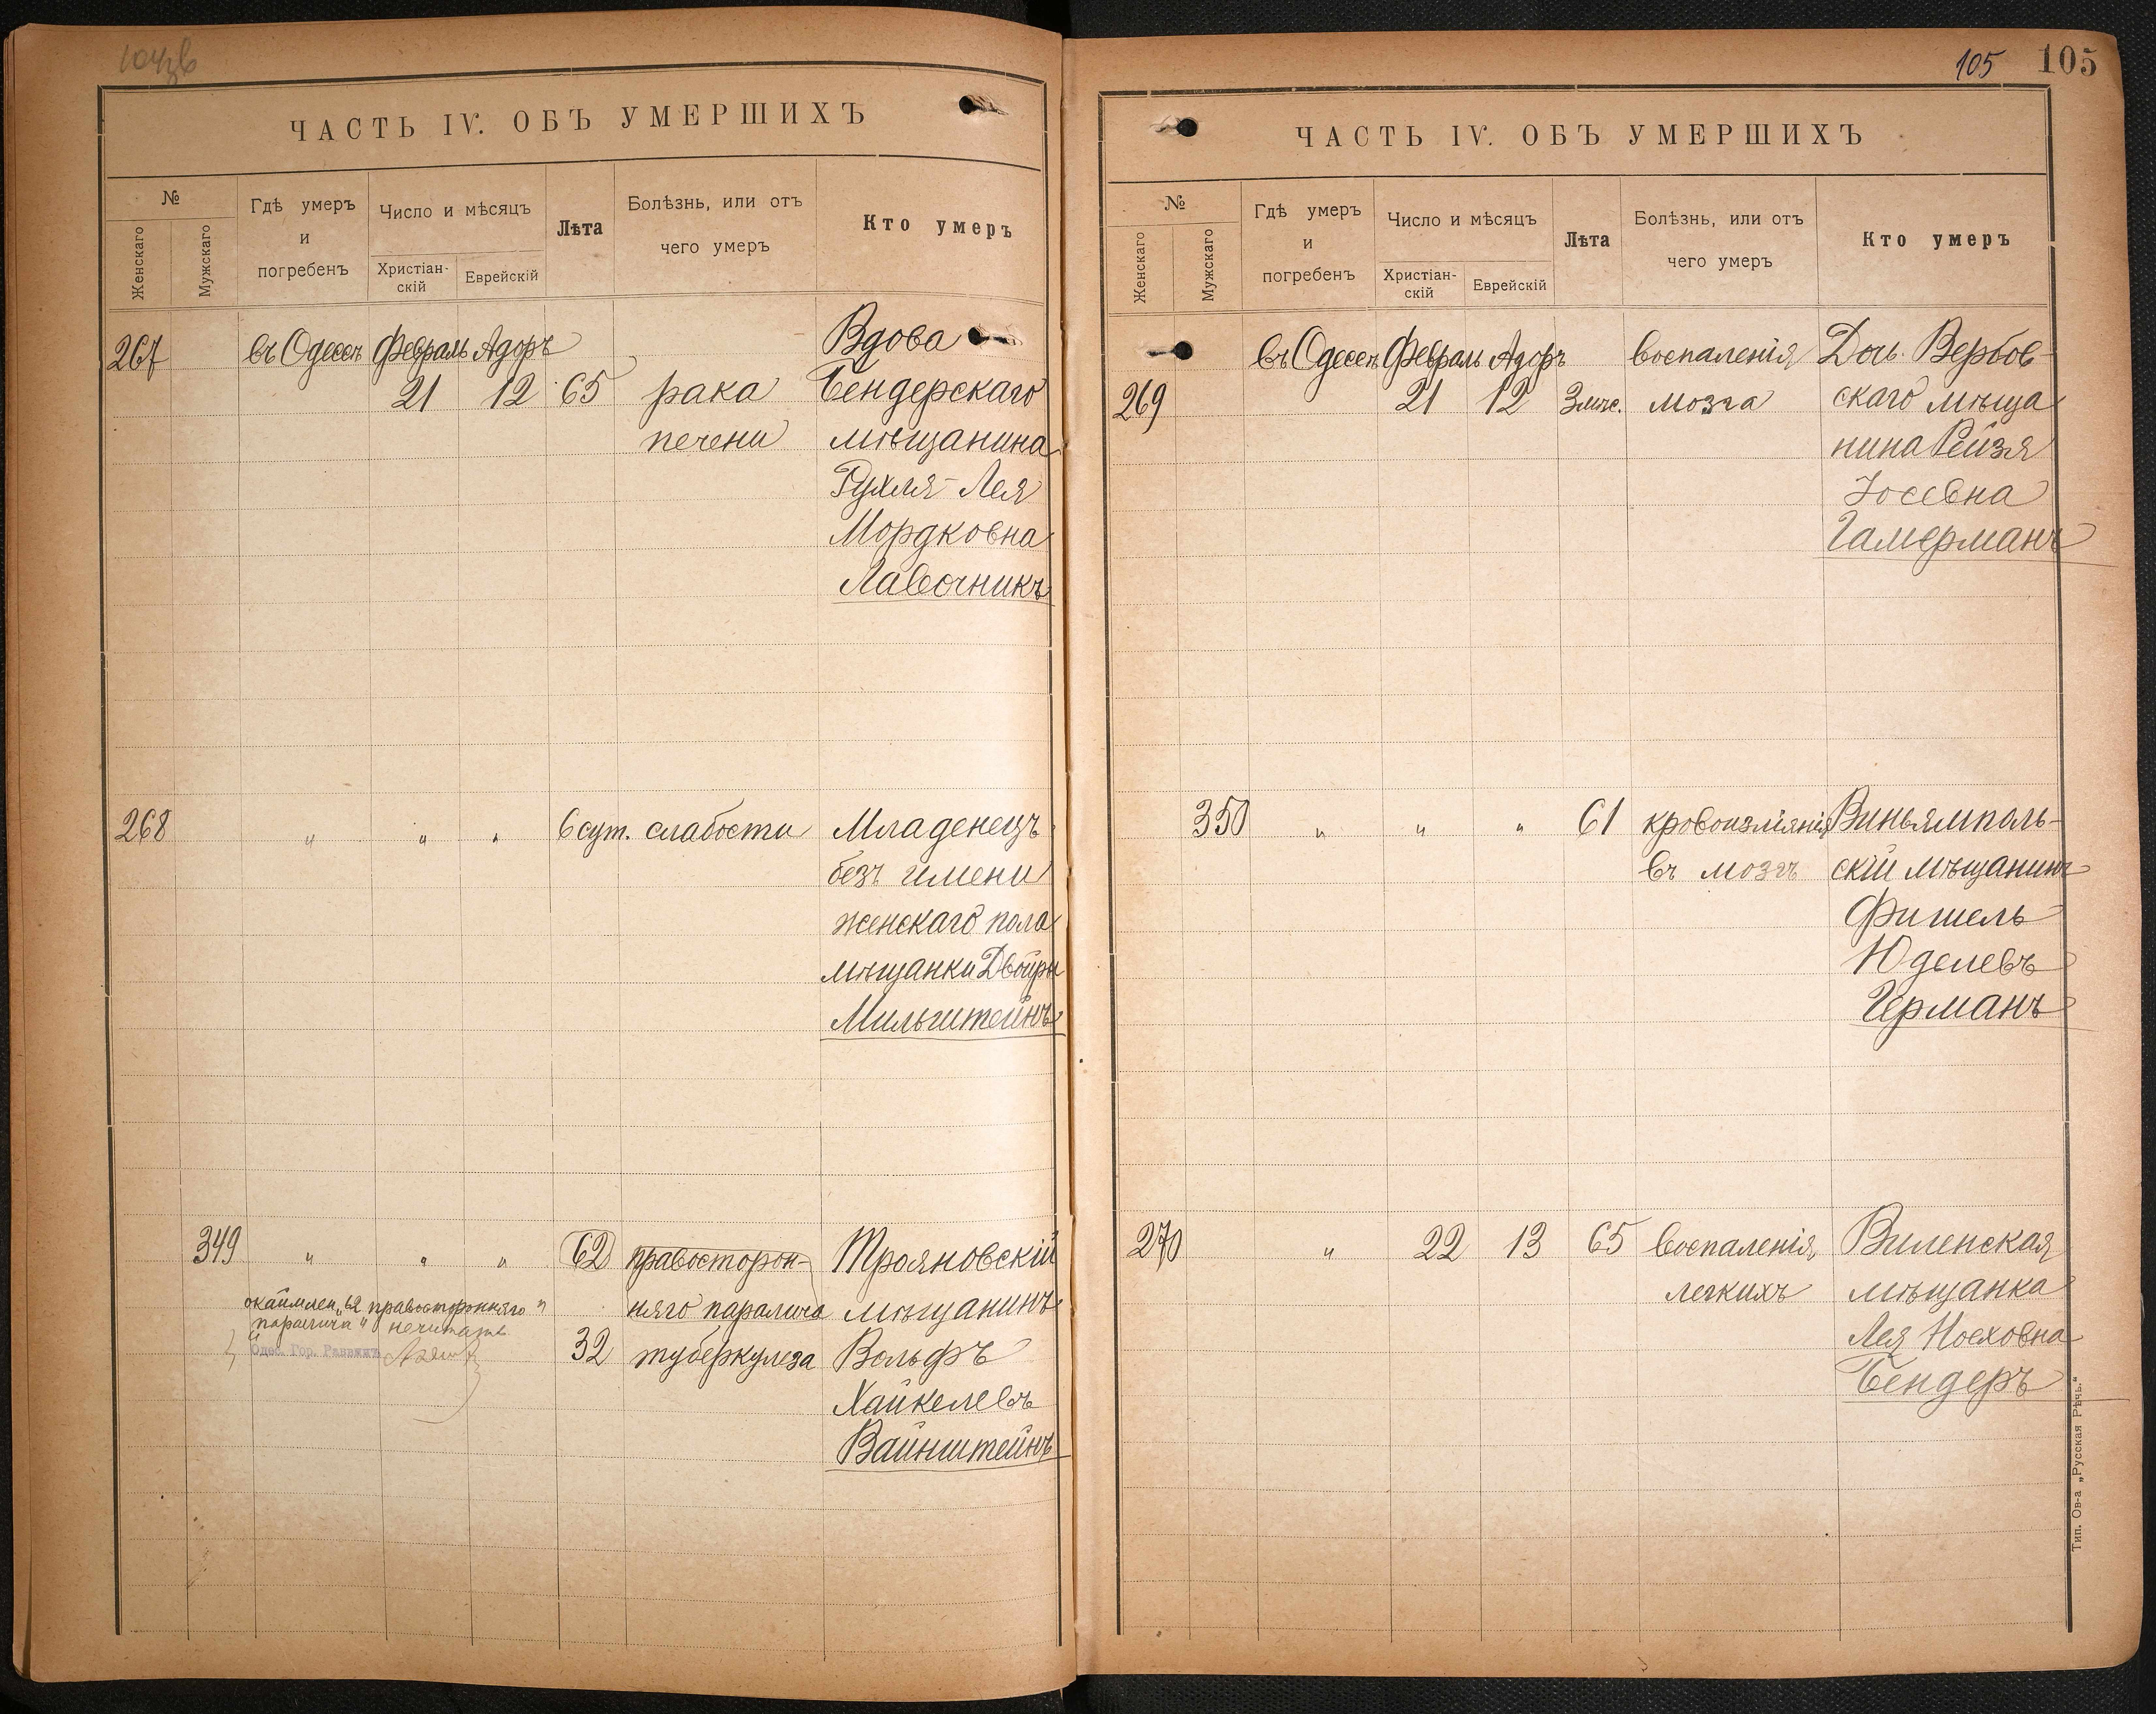 104зв
ЧАСТЬ IV. ОБЪ УМЕРШИХЪ
№
Женскаго
Мужскаго
Гдѣ умеръ
и
погребенъ
Число и мѣсяцъ
Христіан-
скій
Еврейскій
Лѣта
Болѣзнь, или отъ
чего умеръ
Кто умеръ
267 въ Одессѣ Февраль Адоръ Вдова
21 12 65 рака Бендерскаго
печени мѣщанина
Рухля-Лея
Мордковна
Лавочникъ
268 " " " 6 сут. слабости Младенецъ
безъ имени
женскаго пола
мѣщанки Двойры
Мильштейнъ
349 " " " 62 правосторон- Трояновскій
няго паралича мѣщанинъ
окаймлен. „62 правосторонняго
паралича" нечитать
Одес. Гор. Раввинъ
32 туберкулеза Вольфъ
Хайкелевъ
Вайнштейнъ
105 105
ЧАСТЬ IV. ОБЪ УМЕРШИХЪ
№
Женскаго
Мужскаго
Гдѣ умеръ
и
погребенъ
Число и мѣсяцъ
Христіан-
скій
Еврейскій
Лѣта
Болѣзнь, или отъ
чего умеръ
Кто умеръ
въ Одессѣ Февраль Адоръ воспаленія Дочь Вербов-
269 21 12 3 мѣс. мозга скаго мѣща
нина Рейзя
Іосевна
Гамерманъ
350 " " " 61 кровоизліянія Виньямполь-
въ мозгъ скій мѣщанинъ
Фишель
Юделевъ
Германъ
270 " 22 13 65 воспаленія Виленская
легкихъ мѣщанка
Лея Носховна
Бендеръ
Тип. Ов-а „Русская Рѣчь."